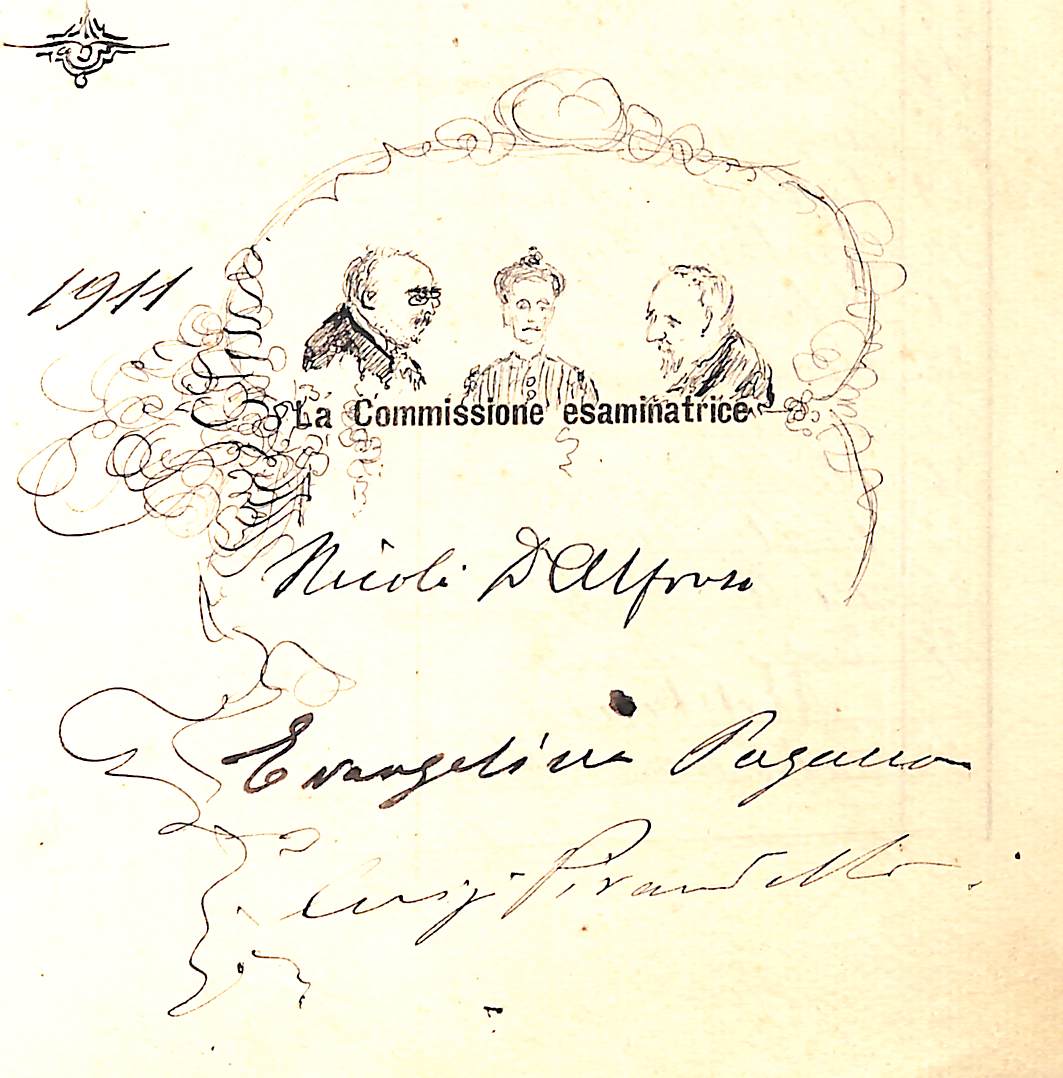 1911
La Commissione esaminatrice
Nicola D'Alfonso
Evangelina Pagano
Luigi Pirandello.